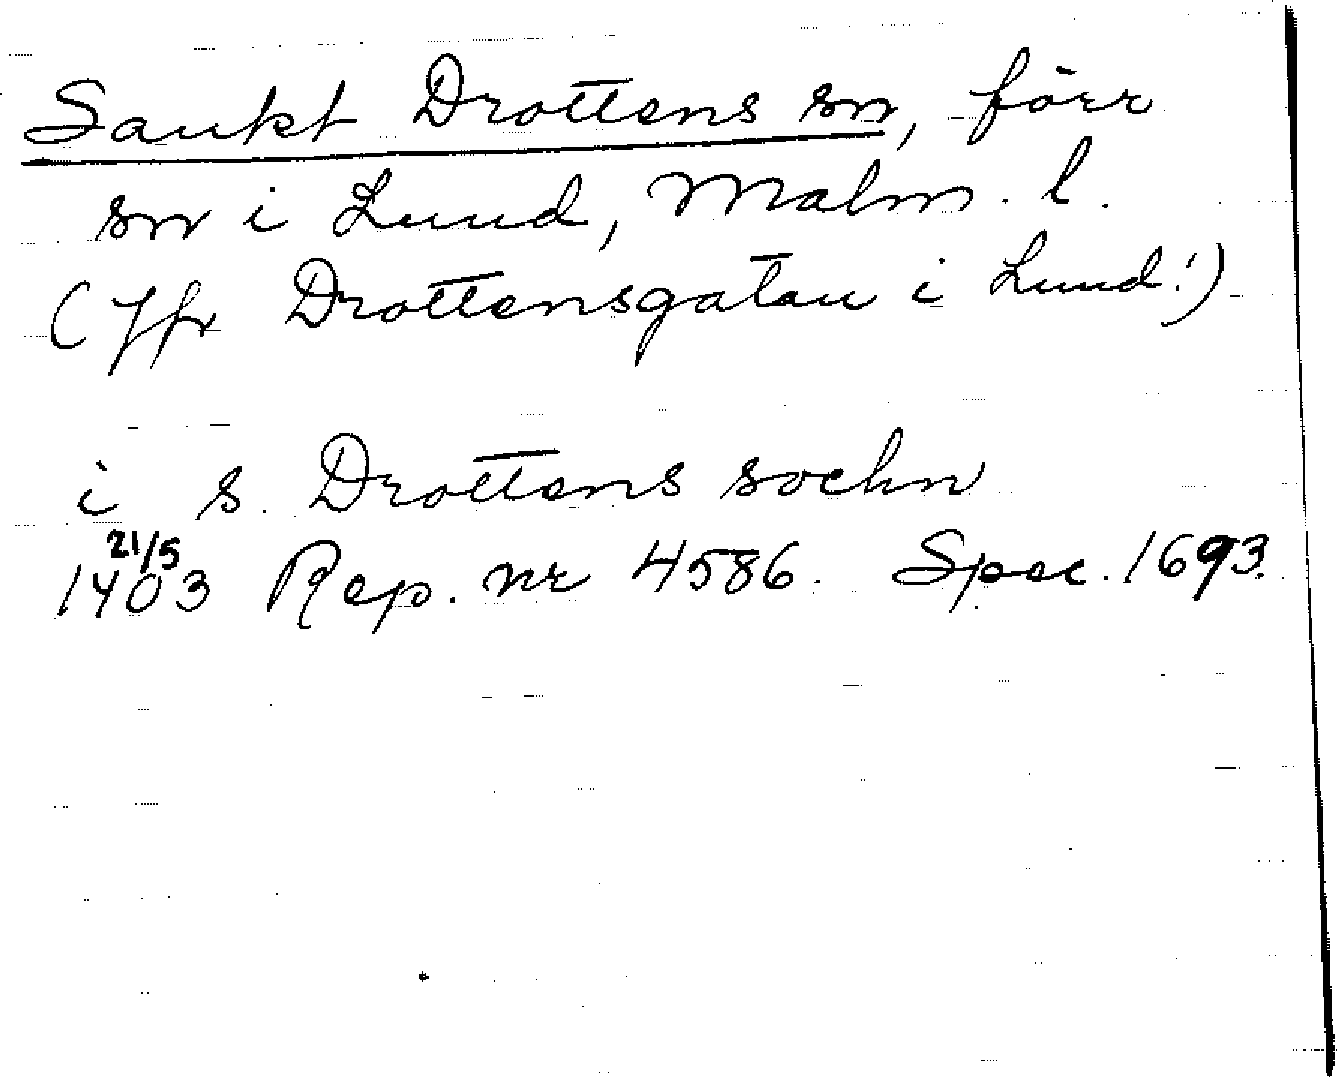 Sankt Drottens sn, förr
sn i Lund, Malm. l.
(Jfr Drottensgatan i Lund!)
i s. Drottens sochn
21/5
1403 Rep. nr 4586. Spec. 1693.